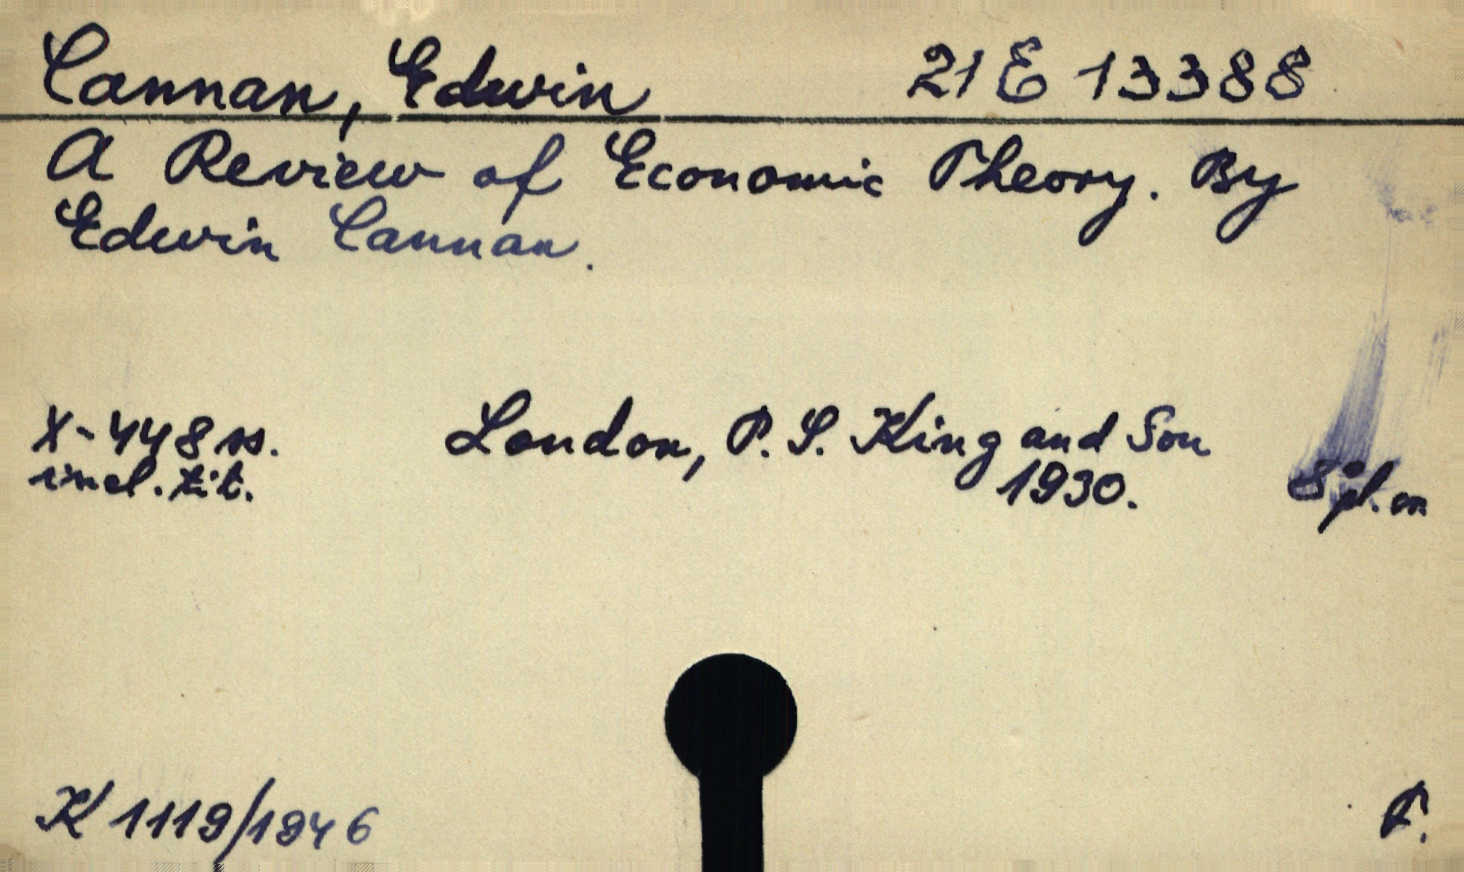 Cannan, Edwin 21 E 13388
A Review of Economic Theory. By
Edwin Cannan.
X-448 ss. London, P. S. King and Son
incl. tit. 1930. 8° pł. on
K 1119/1946 F.